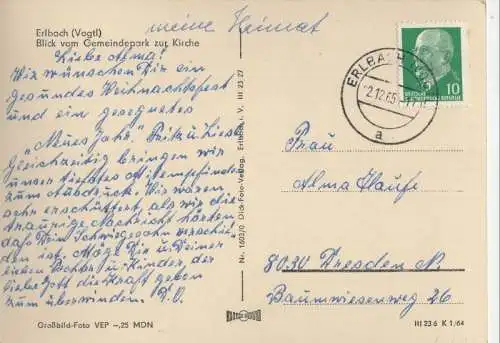 Erlbach (Vogtl)
Blick vom Gemeindepark zur Kirche
meine Heimat
Liebe Alma!
Wir wünschen Dir ein
gesundes Weihnachtsfest
und ein gesegnetes
"Neues Jahr". Fritz u. Liesb.
Gleichzeitig bringen wir
unser tiefstes Mitempfinden
zum Ausdruck. Wir waren
sehr erschüttert, als wir die
traurige Nachricht hörten,
daß Dein Schwiegersohn verschie-
den ist. Möge Dir u. Deiner
lieben Tochter u. Kinder, der
liebe Gott die Kraft geben
zum überwinden. D. O.
Großbild-Foto VEP -,25 MDN
Nr. 1603/0 Dick-Foto-Verlag, Erlbach i. V. III 25 27
ERLBACH
2.12.65
a
10
Frau
Alma Haufe
8030 Dresden N.
Baumwiesenweg 26
III 23 6 K 1/64